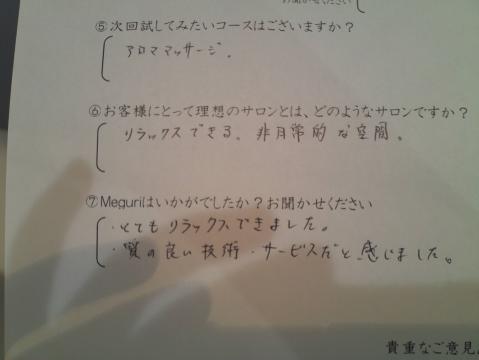 お聞かせください
⑤次回試してみたいコースはございますか？
アロママッサージ。
⑥お客様にとって理想のサロンとは、どのようなサロンですか？
リラックスできる。非日常的な空間。
⑦Meguriはいかがでしたか？お聞かせください
・とてもリラックスできました。
・質の良い技術・サービスだと感じました。
貴重なご意見